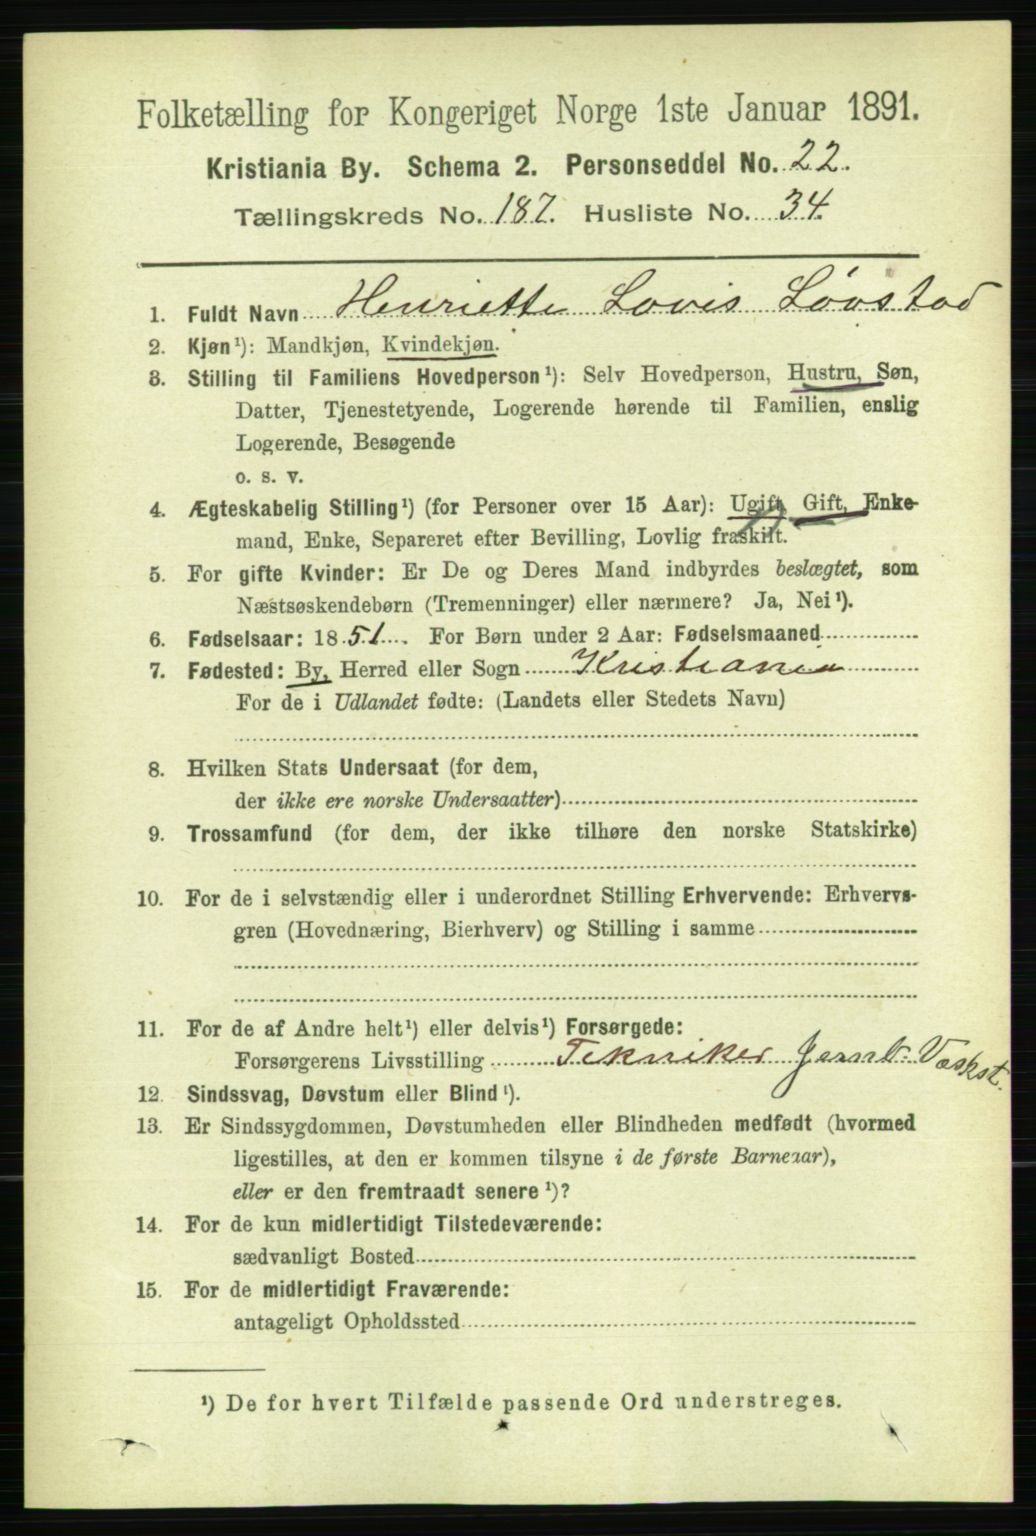 Folketælling for Kongeriget Norge 1ste Januar 1891.
Kristiania By. Schema 2. Personseddel No. 22.
Tællingskreds No. 187. Husliste No. 34.
1. Fuldt Navn Henriette Lovis Løvstad
2. Kjøn¹): Mandkjøn, Kvindekjøn.
3. Stilling til Familiens Hovedperson¹): Selv Hovedperson, Hustru, Søn,
Datter, Tjenestetyende, Logerende hørende til Familien, enslig
Logerende, Besøgende
o. s. v.
4. Ægteskabelig Stilling¹) (for Personer over 15 Aar): Ugift, Gift, Enke-
mand, Enke, Separeret efter Bevilling, Lovlig fraskilt.
5. For gifte Kvinder: Er De og Deres Mand indbyrdes beslægtet, som
Næstsøskendebørn (Tremenninger) eller nærmere? Ja, Nei¹).
6. Fødselsaar: 1851. For Børn under 2 Aar: Fødselsmaaned
7. Fødested: By, Herred eller Sogn Kristiania
For de i Udlandet fødte: (Landets eller Stedets Navn)
8. Hvilken Stats Undersaat (for dem,
der ikke ere norske Undersaatter)
9. Trossamfund (for dem, der ikke tilhøre den norske Statskirke)
10. For de i selvstændig eller i underordnet Stilling Erhvervende: Erhvervs-
gren (Hovednæring, Bierhverv) og Stilling i samme
11. For de af Andre helt¹) eller delvis¹) Forsørgede:
Forsørgerens Livsstilling Tekniker Jernb. Værkst.
12. Sindssvag, Døvstum eller Blind¹).
13. Er Sindssygdommen, Døvstumheden eller Blindheden medfødt (hvormed
ligestilles, at den er kommen tilsyne i de første Barneaar),
eller er den fremtraadt senere¹)?
14. For de kun midlertidigt Tilstedeværende:
sædvanligt Bosted
15. For de midlertidigt Fraværende:
antageligt Opholdssted
¹) De for hvert Tilfælde passende Ord understreges.